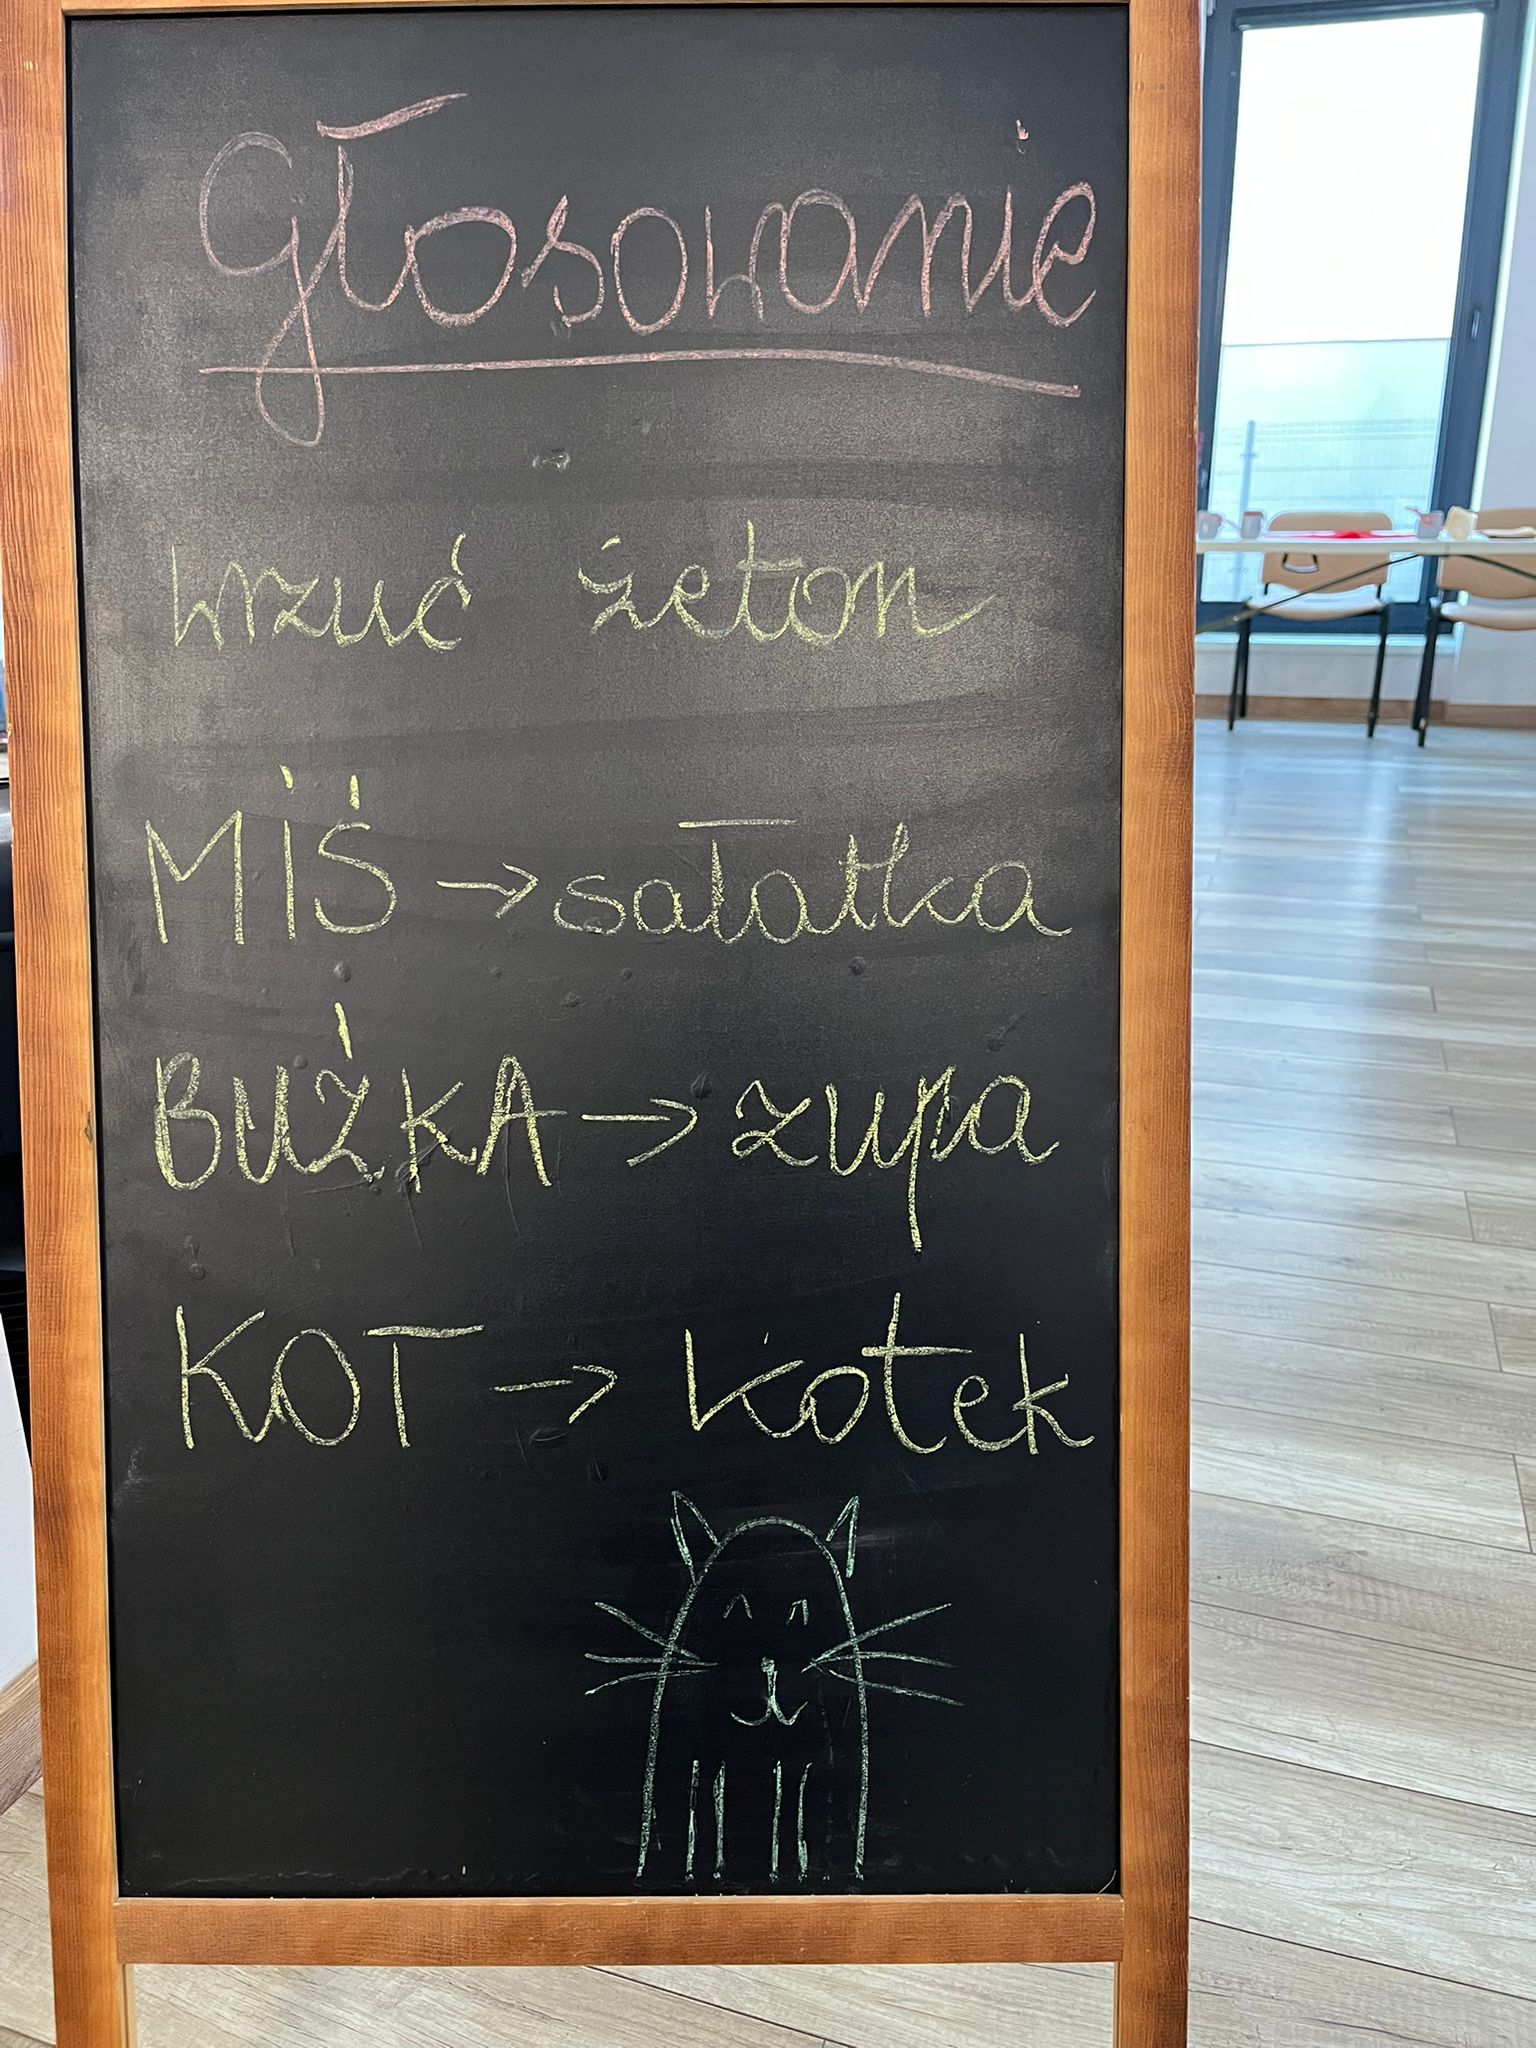 Głosowanie
wrzuć żeton
MIŚ → sałatka
BUŹKA → zupa
KOT → kotek